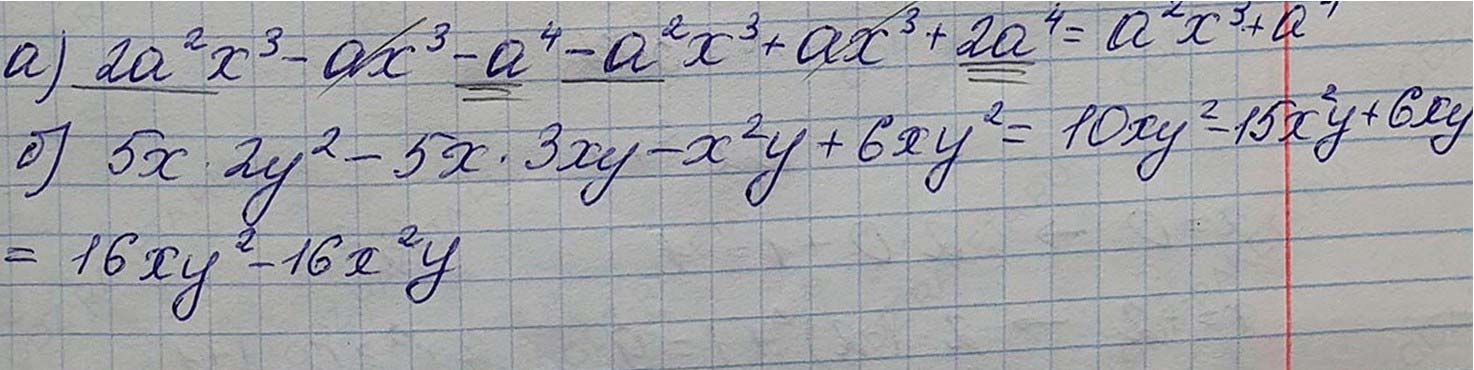 а) 2a²x³ - ax³ - a⁴ - a²x³ + ax³ + 2a⁴ = a²x³ + a⁴
б) 5x · 2y² - 5x · 3xy - x²y + 6xy² = 10xy² - 15x²y + 6xy
= 16xy² - 16x²y